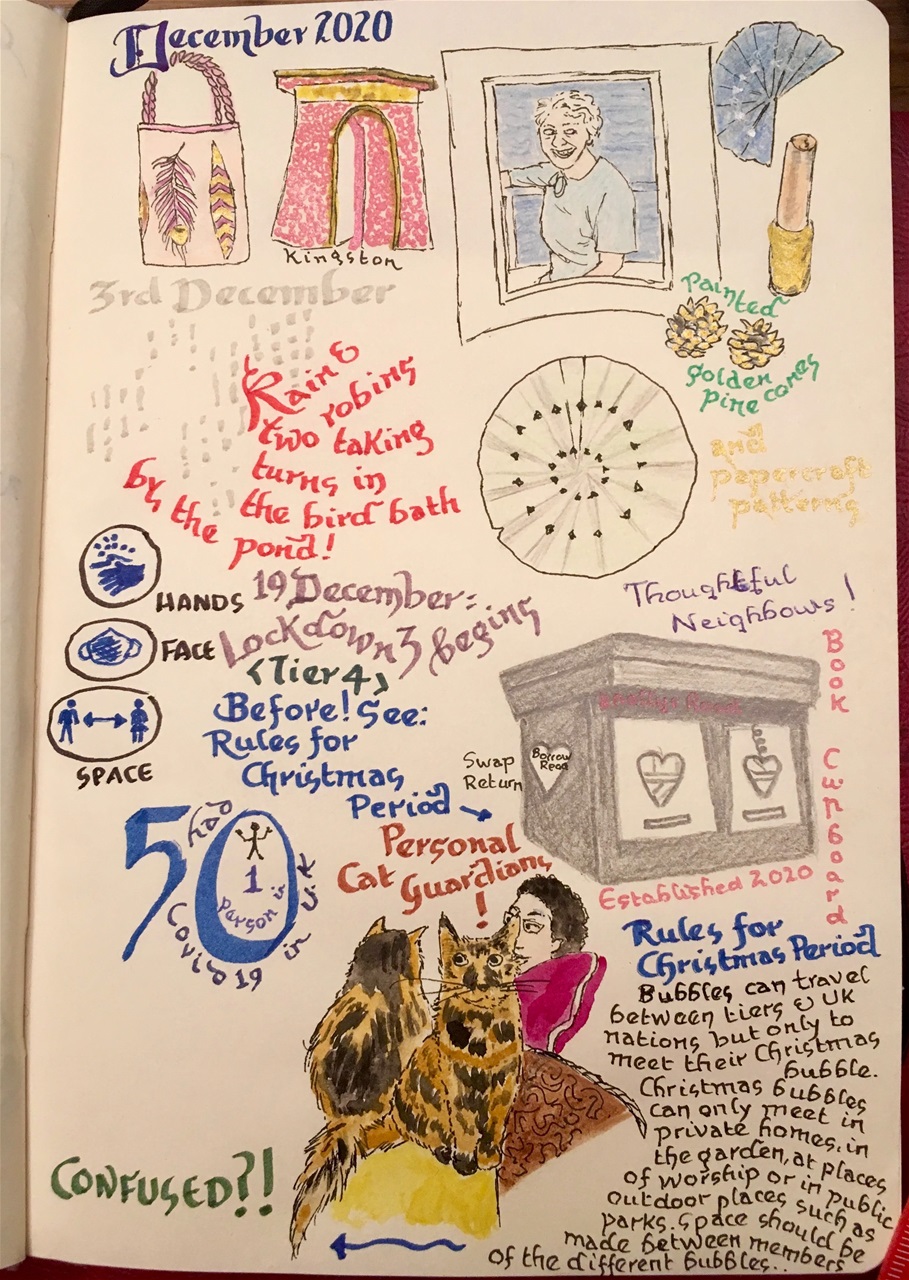 December 2020
Kingston
3rd December
painted
golden
pine cones
and
papercraft
patterns
Rain &
two robins
two taking
turns in
the bird bath
by the
pond!
HANDS
FACE
SPACE
19 December:
Lockdown 3 begins
<Tier 4>
Before! See:
Rules for
Christmas
Period
Thoughtful
Neighbows!
Book Cupboard
Swap
Return
Borrow
Read
Established 2020
50
1
Person is
in UK
Covid 19
Personal
Cat Guardians
!
Rules for
Christmas Period
Bubbles can travel
between tiers & UK
nations but only to
meet their Christmas
bubble.
Christmas bubbles
can only meet in
private homes, in
the garden, at places
of worship or in public
outdoor places such as
parks. Space should be
made between members
of the different bubbles..
CONFUSED?!